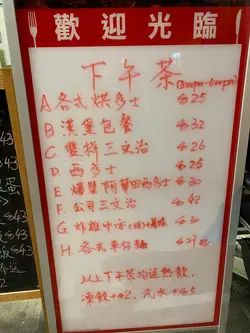 歡迎光臨
下午茶
A 各式烘多士 $25
B 漢堡包餐 $32
C 雙拼三文治 $26
D. 西多士 $28
E. 爆漿阿華田西多士 $30
F. 公司三文治 $42
G. 炸雞中亦 $30
H. 各式車仔麵 $29起
以上下午茶均送熱飲,
凍飲+$2, 汽水+$5